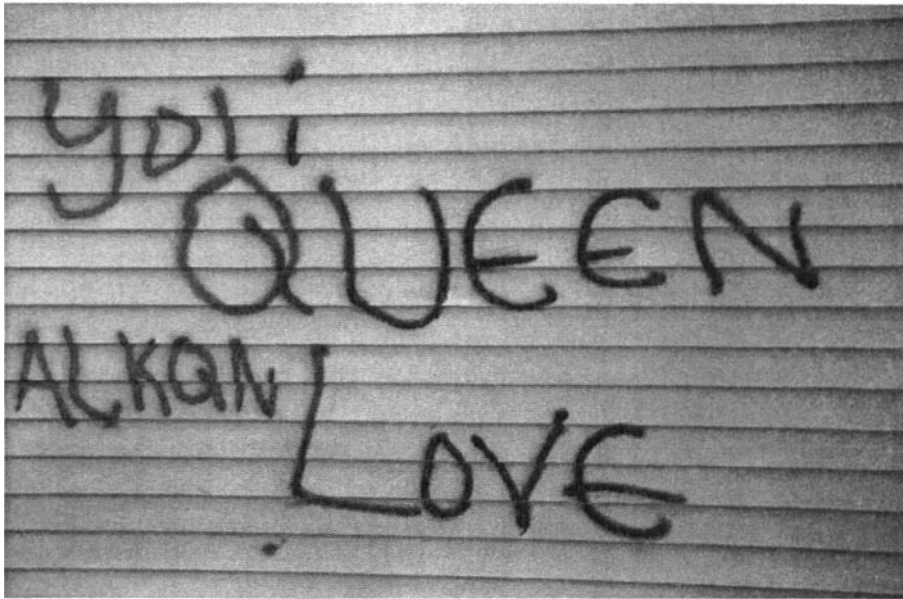 yoli
QUEEN
ALKQN
LOVE